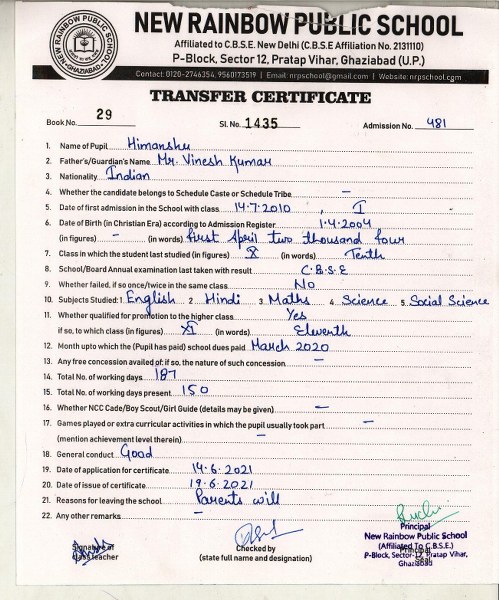 NEW RAINBOW PUBLIC SCHOOL
NEW RAINBOW PUBLIC SCHOOL
GHAZIABAD
Affiliated to C.B.S.E. New Delhi (C.B.S.E Affiliation No. 2131110)
P-Block, Sector 12, Pratap Vihar, Ghaziabad (U.P.)
Contact: 0120-2746354, 9560173519 | Email: nrpschool@gmail.com | Website: nrpschool.com
TRANSFER CERTIFICATE
Book No. 29 Sl. No. 1435 Admission No. 481
1. Name of Pupil Himanshu
2. Father's/Guardian's Name Mr. Vinesh Kumar
3. Nationality Indian
4. Whether the candidate belongs to Schedule Caste or Schedule Tribe -
5. Date of first admission in the School with class 14.7.2010, I
6. Date of Birth (in Christian Era) according to Admission Register 1.4.2004
(in figures) - (in words) first April two thousand four
7. Class in which the student last studied (in figures) X (in words) Tenth
8. School/Board Annual examination last taken with result C.B.S.E
9. Whether failed, if so once/twice in the same class No
10. Subjects Studied: 1. English 2. Hindi 3. Maths 4. Science 5. Social Science
11. Whether qualified for promotion to the higher class Yes
if so, to which class (in figures) XI (in words) Eleventh
12. Month upto which the (Pupil has paid) school dues paid March 2020
13. Any free concession availed of: if so, the nature of such concession -
14. Total No. of working days 187
15. Total No. of working days present 150
16. Whether NCC Cade/Boy Scout/Girl Guide (details may be given) -
17. Games played or extra curricular activities in which the pupil usually took part -
(mention achievement level therein) -
18. General conduct Good
19. Date of application for certificate 14.6.2021
20. Date of issue of certificate 19.6.2021
21. Reasons for leaving the school Parents will
22. Any other remarks -
Signature of
class teacher
Checked by
(state full name and designation)
Principal
New Rainbow Public School
(Affiliated To C.B.S.E.)
P-Block, Sector-12, Pratap Vihar,
Ghaziabad
Principal
Seal